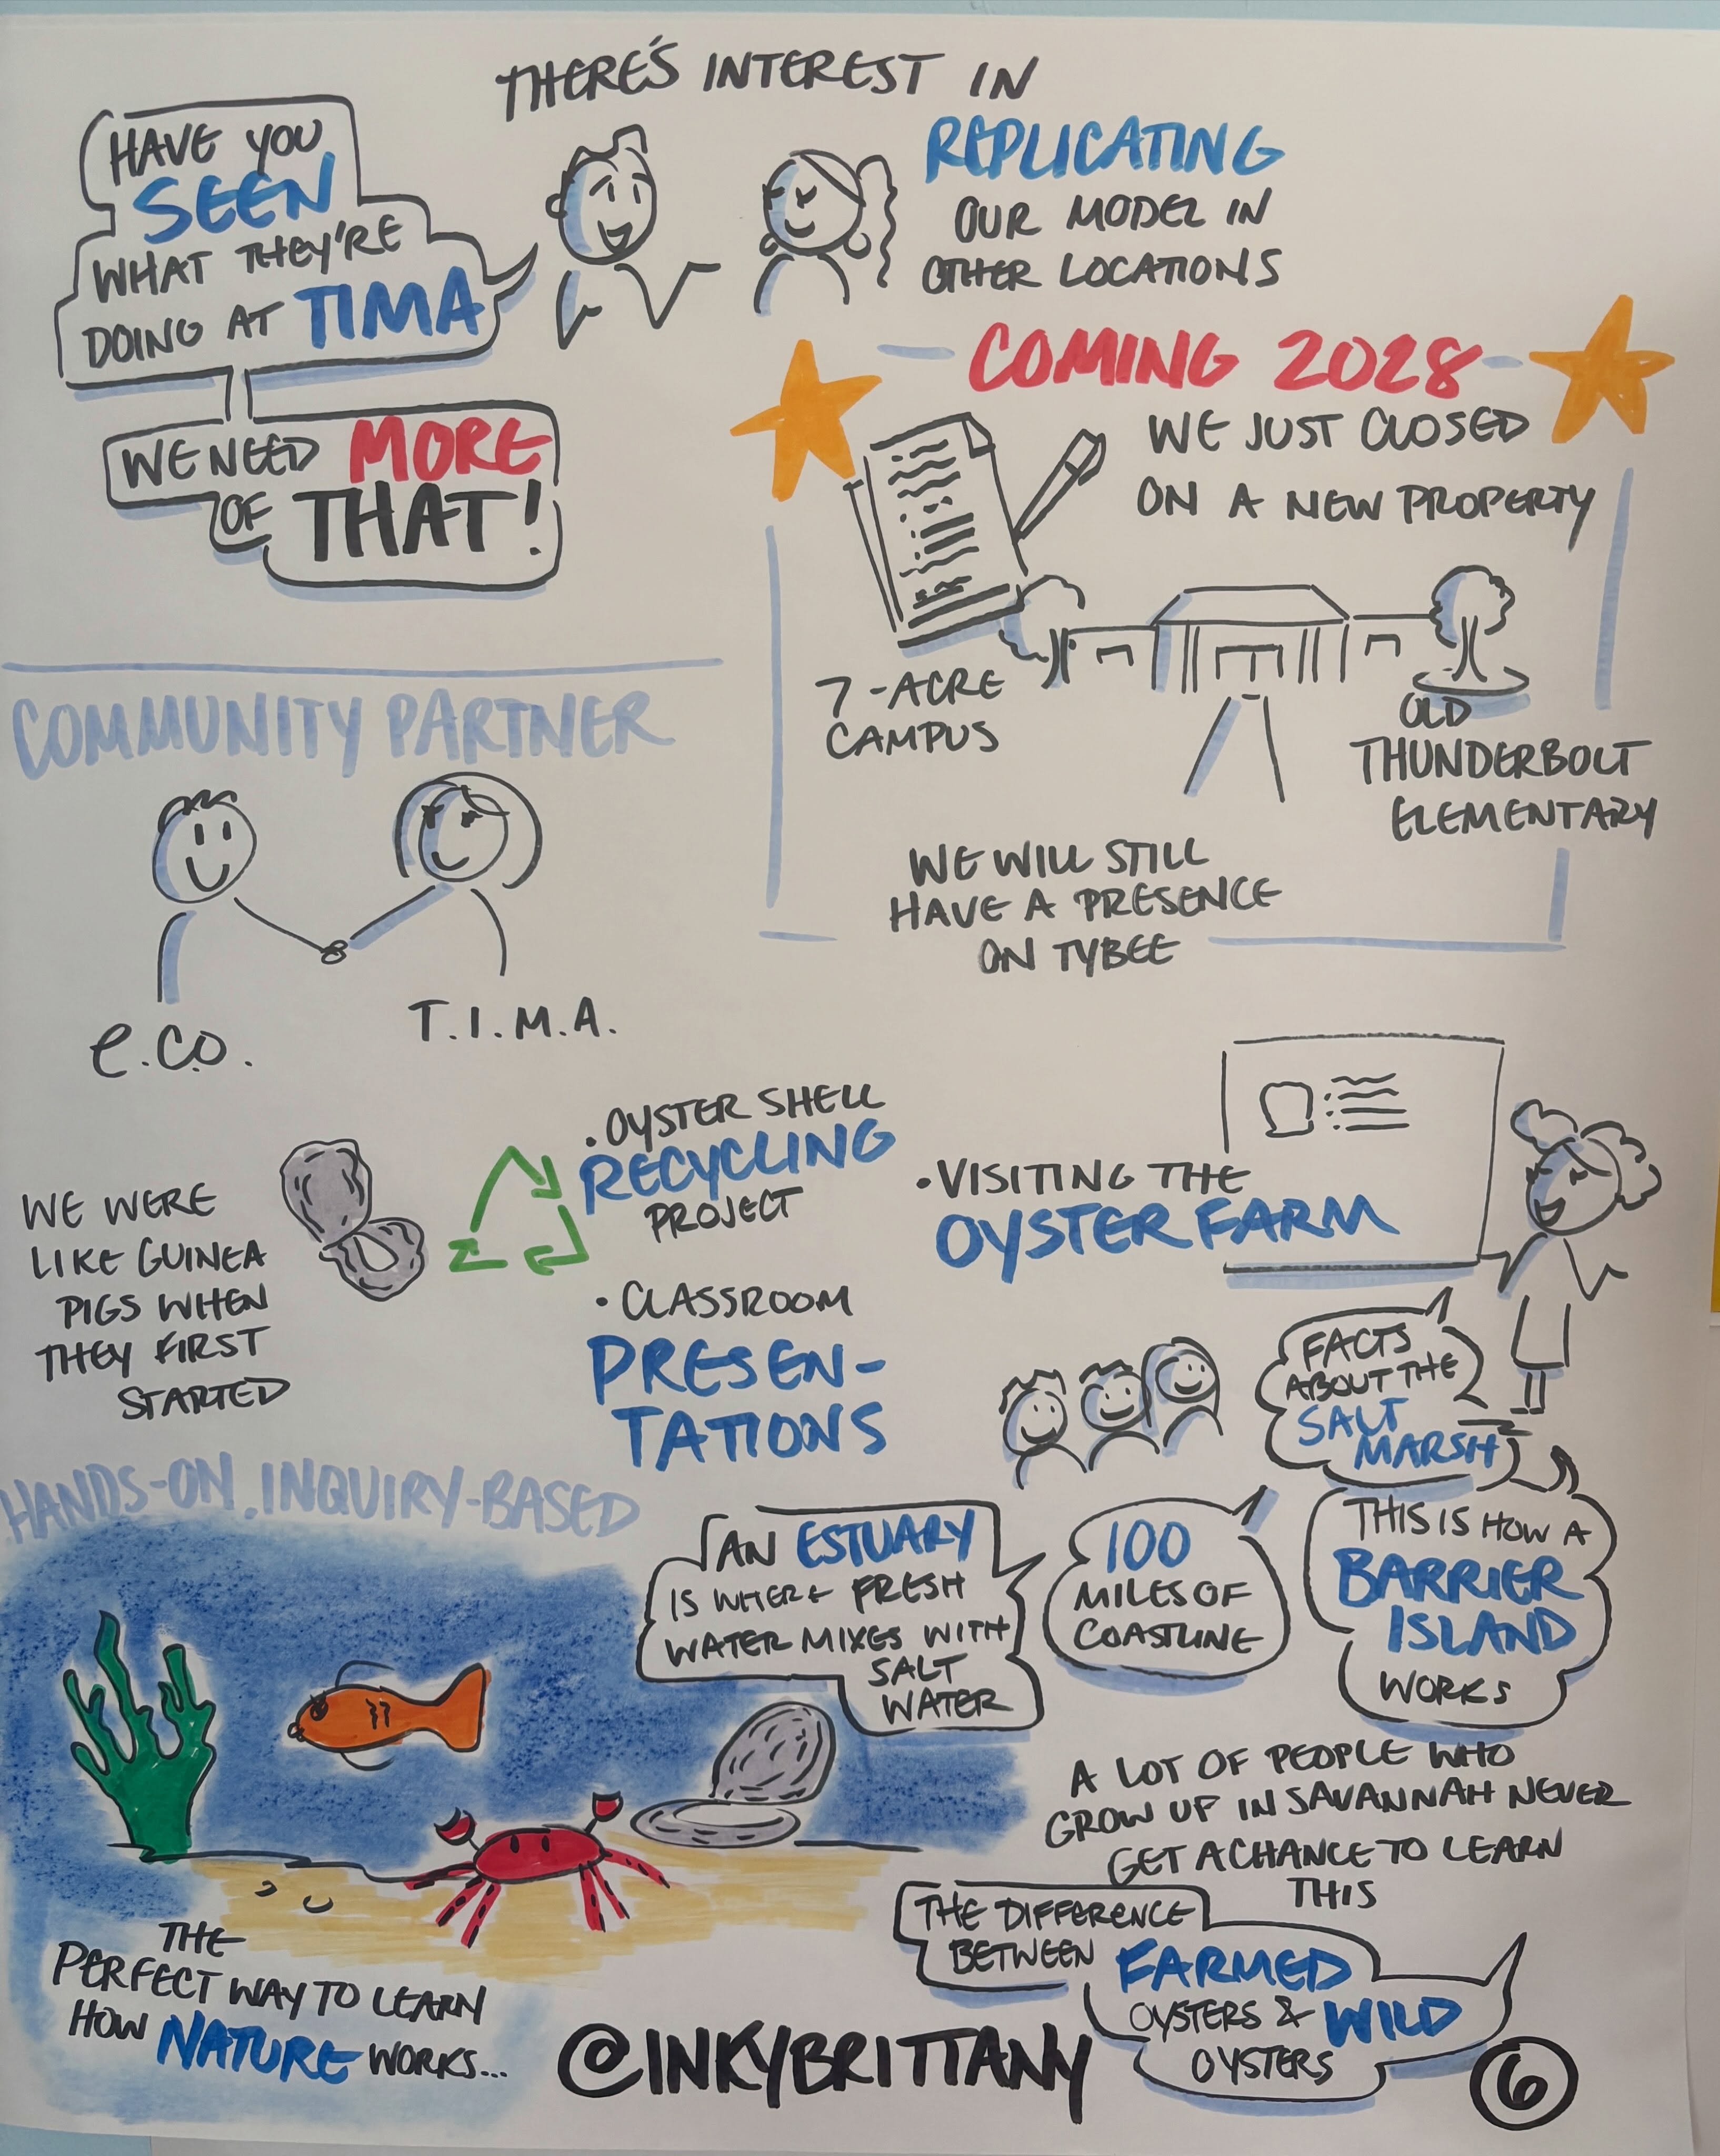 THERE'S INTEREST IN
REPLICATING
OUR MODEL IN
OTHER LOCATIONS
HAVE YOU
SEEN
WHAT THEY'RE
DOING AT TIMA
WE NEED MORE
OF THAT!
COMING 2028
WE JUST CLOSED
ON A NEW PROPERTY
7-ACRE
CAMPUS
OLD
THUNDERBOLT
ELEMENTARY
WE WILL STILL
HAVE A PRESENCE
ON TYBEE
COMMUNITY PARTNER
e.co.
T.I.M.A.
WE WERE
LIKE GUINEA
PIGS WHEN
THEY FIRST
STARTED
• OYSTER SHELL
RECYCLING
PROJECT
• CLASSROOM
PRESEN-
TATIONS
• VISITING THE
OYSTER FARM
FACTS
ABOUT THE
SALT
MARSH
THIS IS HOW A
BARRIER
ISLAND
WORKS
100
MILES OF
COASTLINE
AN ESTUARY
IS WHERE FRESH
WATER MIXES WITH
SALT
WATER
HANDS-ON, INQUIRY-BASED
THE
PERFECT WAY TO LEARN
HOW NATURE WORKS...
A LOT OF PEOPLE WHO
GROW UP IN SAVANNAH NEVER
GET A CHANCE TO LEARN
THIS
THE DIFFERENCE
BETWEEN FARMED
OYSTERS & WILD
OYSTERS
@INKYBRITTANY
6